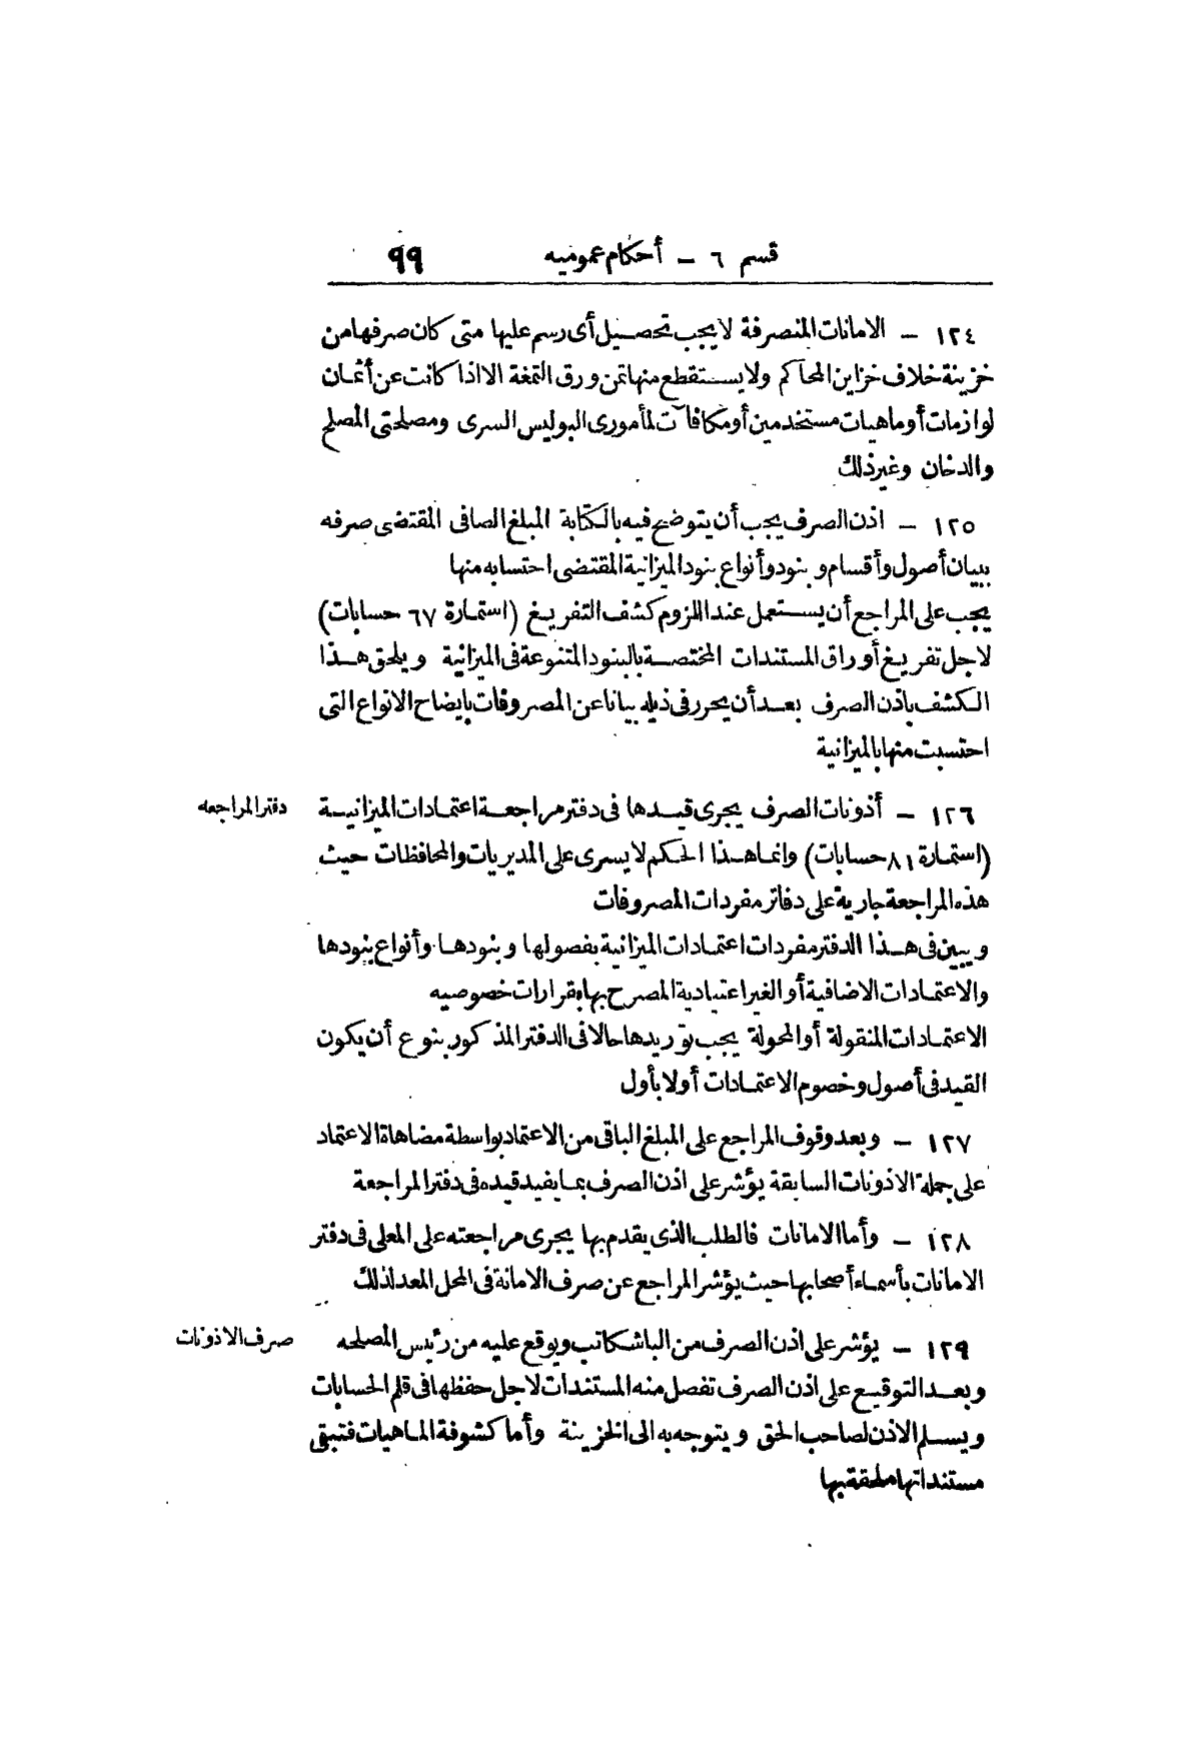 قسم ٦ — أحكام عموميه ٩٩
١٢٤ — الامانات المنصرفة لا يجب تحصيل أى رسم عليها متى كان صرفها من
خزينة خلاف خزاين المحاكم ولا يستقطع منها ثمن ورق التمغة الا اذا كانت عن أثمان
لوازمات أو ماهيات مستخدمين أو مكافآت لمأمورى البوليس السرى ومصلحتى الملح
والدخان وغير ذلك
١٢٥ — اذن الصرف يجب أن يتوضح فيه بالكتابة المبلغ الصافى المقتضى صرفه
ببيان أصول وأقسام وبنود وأنواع بنود الميزانية المقتضى احتسابه منها
يجب على المراجع أن يستعمل عند اللزوم كشف التفريغ (استمارة ٦٧ حسابات)
لاجل تفريغ أوراق المستندات المختصة بالبنود المتنوعة فى الميزانية ويلحق هذا
الكشف باذن الصرف بعد أن يحرر فى ذيله بيانا عن المصروفات بايضاح الانواع التى
احتسبت منها بالميزانية
١٢٦ — أذونات الصرف يجرى قيدها فى دفتر مراجعة اعتمادات الميزانية
دفتر المراجعه
(استمارة ٨١ حسابات) وانما هذا الحكم لا يسرى على المديريات والمحافظات حيث
هذه المراجعة جارية على دفاتر مفردات المصروفات
ويبين فى هذا الدفتر مفردات اعتمادات الميزانية بفصولها وبنودها وأنواع بنودها
والاعتمادات الاضافية أو الغير اعتيادية المصرح بها بقرارات خصوصيه
الاعتمادات المنقولة أو المحولة يجب توريدها حالا فى الدفتر المذكور بنوع أن يكون
القيد فى أصول وخصوم الاعتمادات أولا بأول
١٢٧ — وبعد وقوف المراجع على المبلغ الباقى من الاعتماد بواسطة مضاهاة الاعتماد
على جملة الاذونات السابقة يؤشر على اذن الصرف بما يفيد قيده فى دفتر المراجعة
١٢٨ — وأما الامانات فالطلب الذى يقدم بها يجرى مراجعته على المعلى فى دفتر
الامانات بأسماء أصحابها حيث يؤشر المراجع عن صرف الامانة فى المحل المعد لذلك
١٢٩ — يؤشر على اذن الصرف من الباشكاتب ويوقع عليه من رئيس المصلحه
صرف الاذونات
وبعد التوقيع على اذن الصرف تفصل منه المستندات لاجل حفظها فى قلم الحسابات
ويسلم الاذن لصاحب الحق ويتوجه به الى الخزينة وأما كشوفة الماهيات فتبقى
مستنداتها ملحقة بها